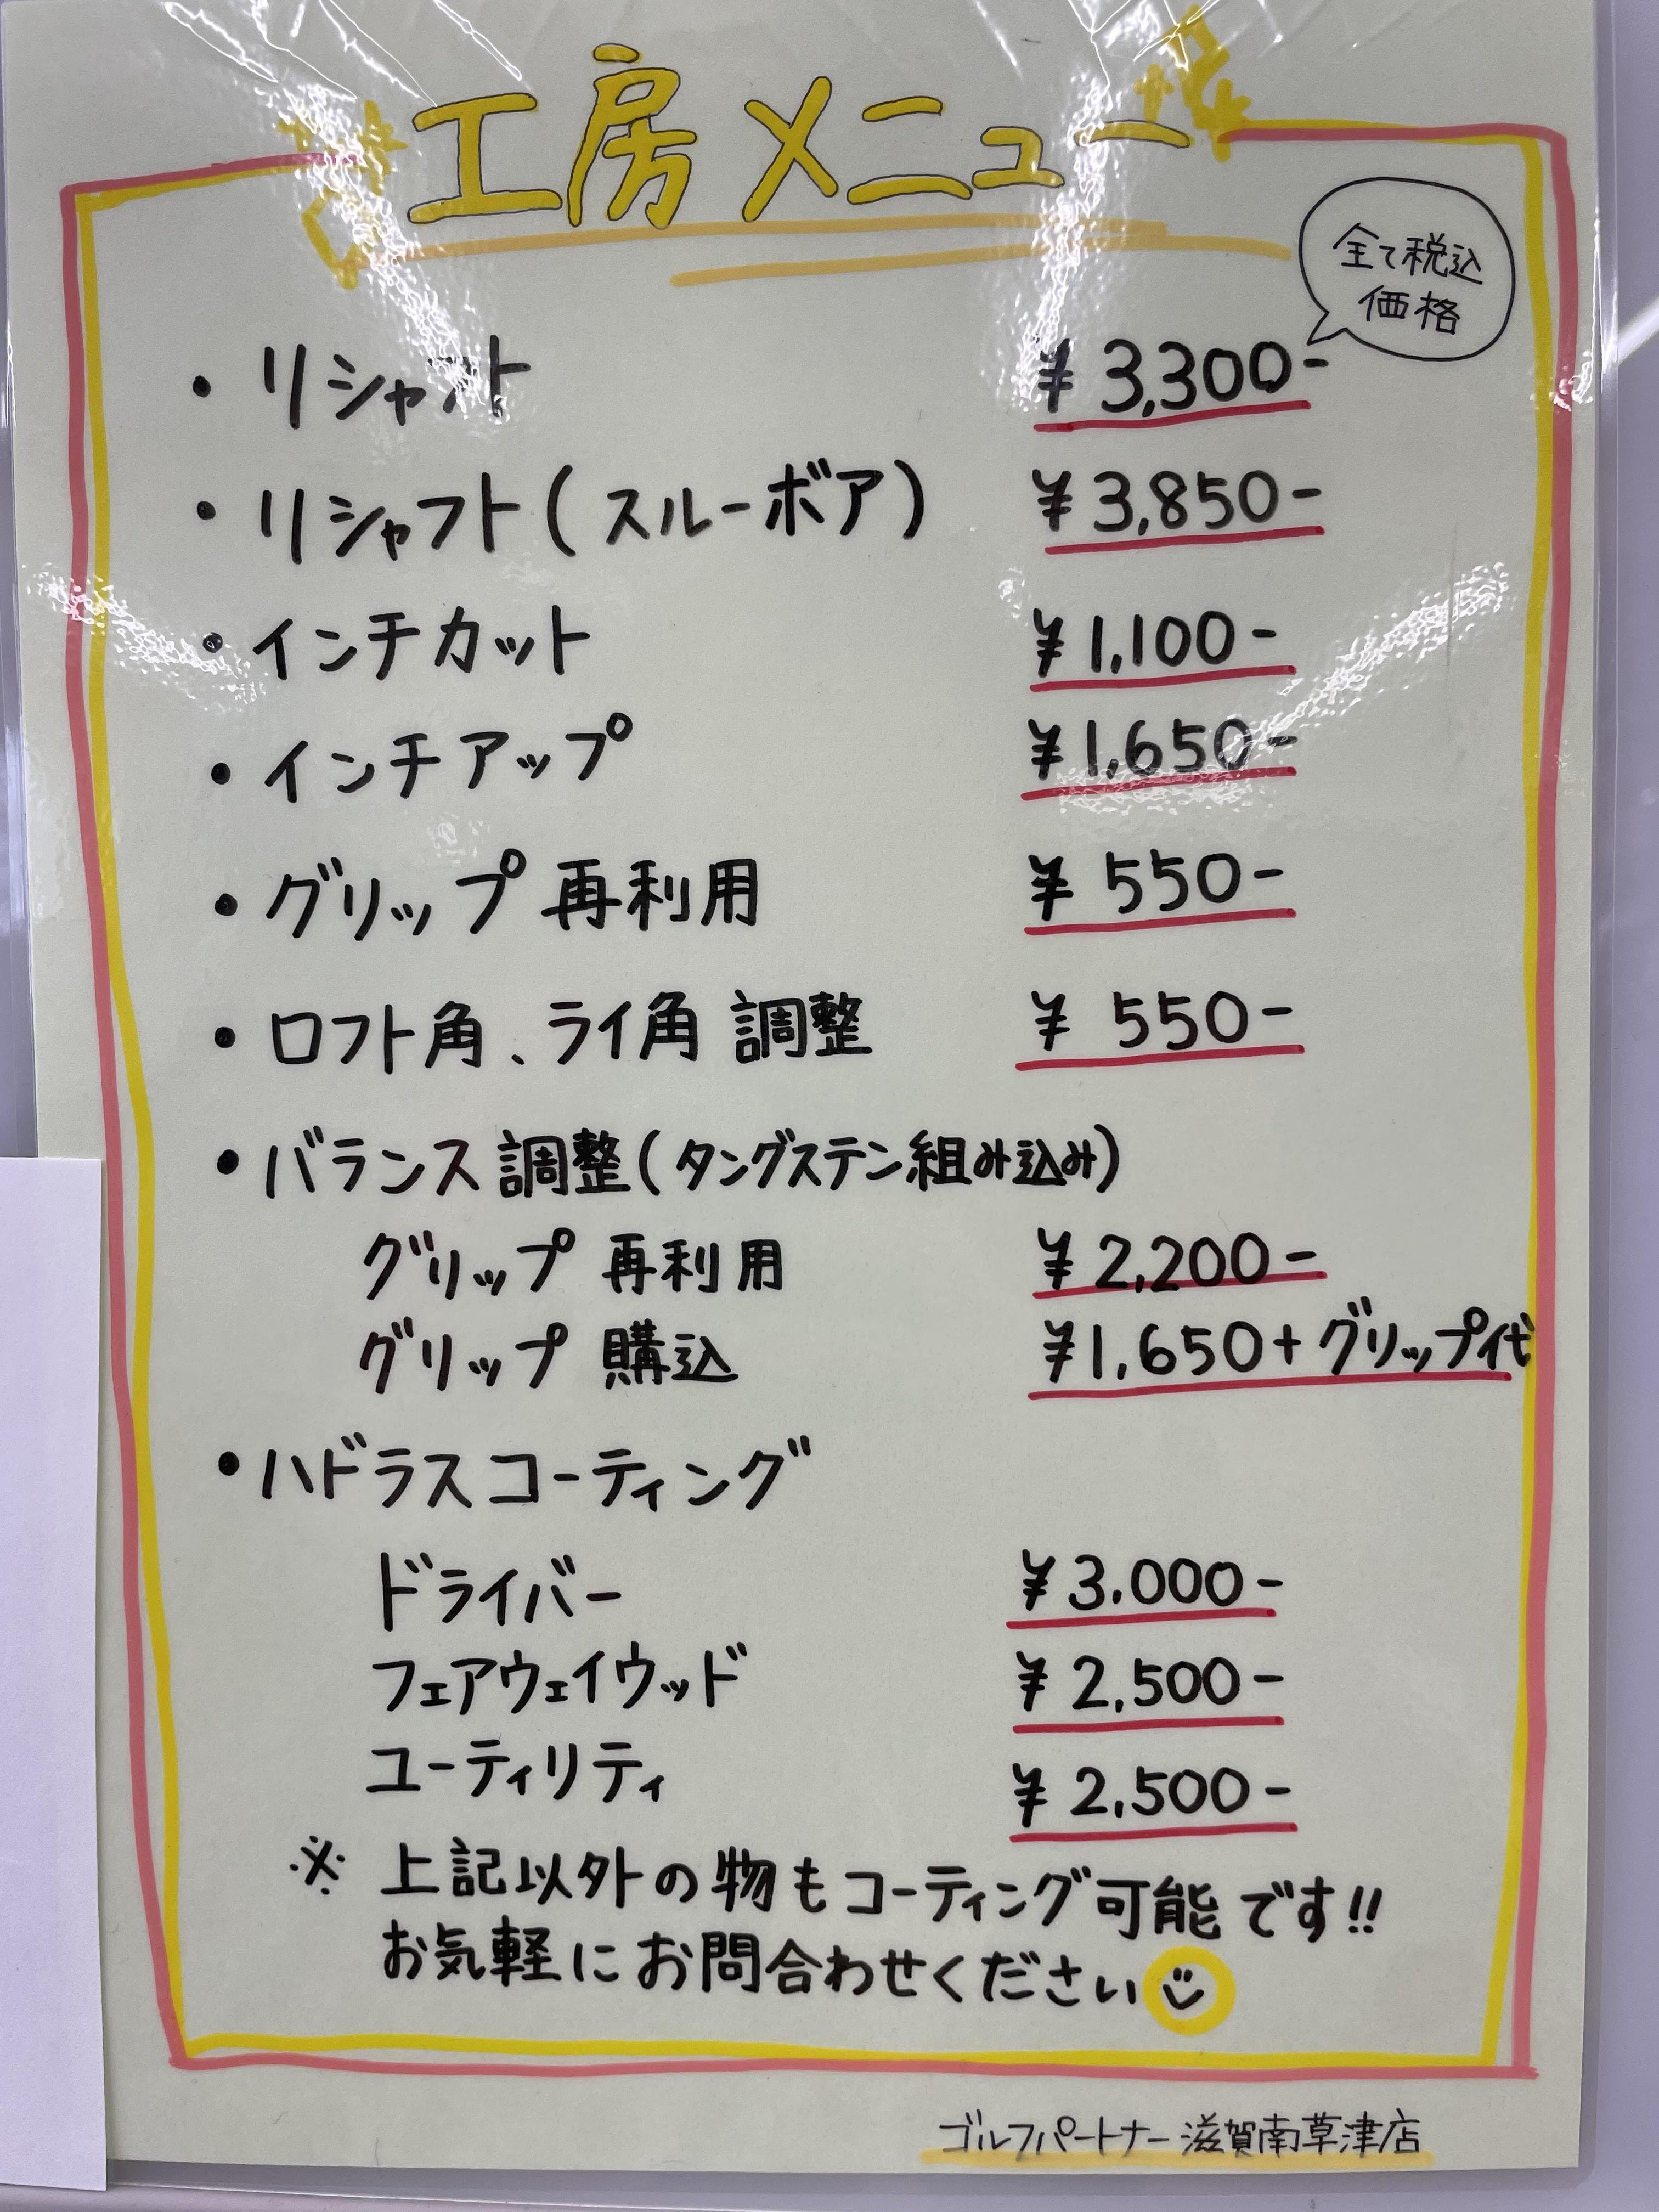 工房メニュー
全て税込
価格
・リシャフト ¥3,300-
・リシャフト(スルーボア) ¥3,850-
・インチカット ¥1,100-
・インチアップ ¥1,650-
・グリップ再利用 ¥550-
・ロフト角、ライ角調整 ¥550-
・バランス調整(タングステン組み込み)
グリップ再利用 ¥2,200-
グリップ購込 ¥1,650+グリップ代
・ハドラスコーティング
ドライバー ¥3.000-
フェアウェイウッド ¥2,500-
ユーティリティ ¥2,500-
※上記以外の物もコーティング可能です!!
お気軽にお問合わせください
ゴルフパートナー滋賀南草津店